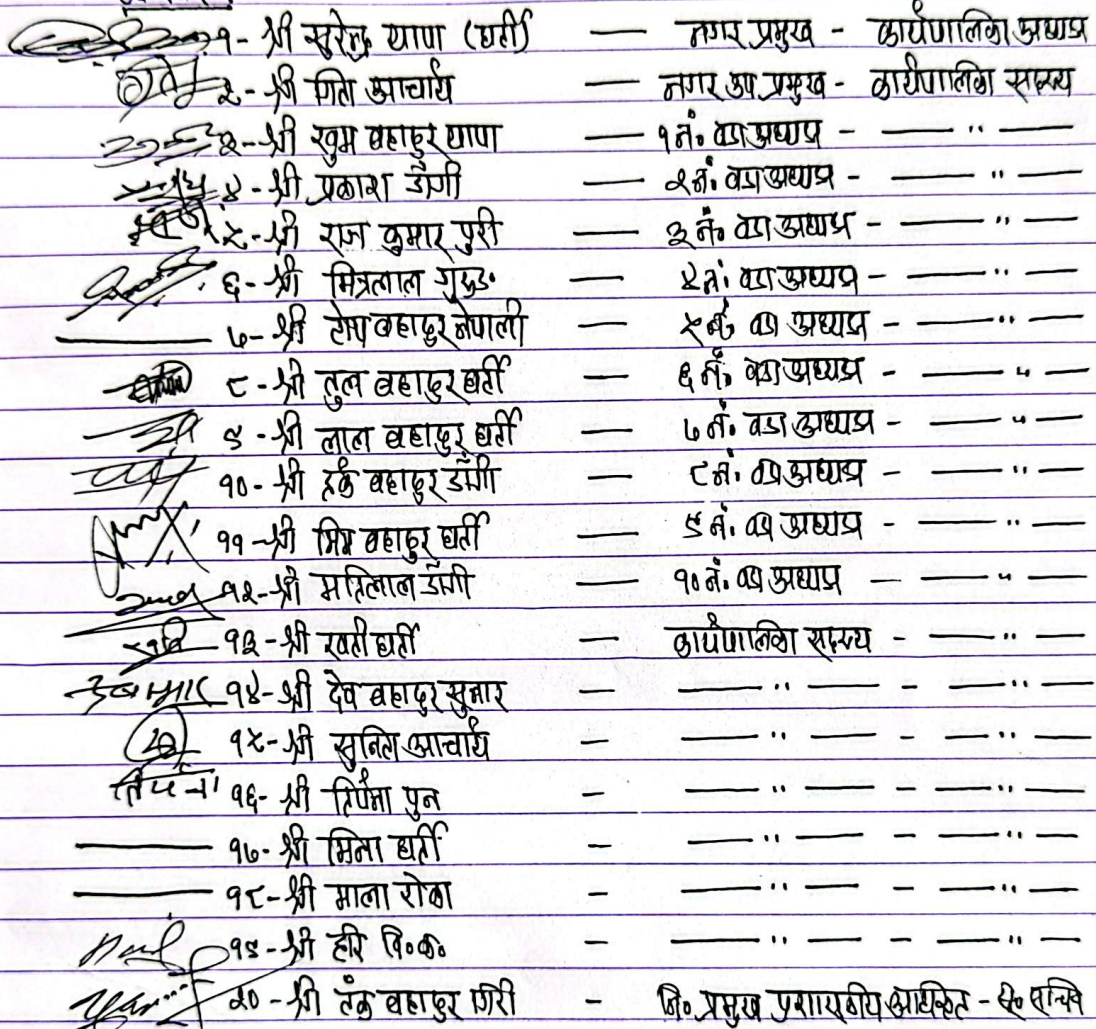 १- श्री सुरेन्द्र थापा (घर्ती) — नगर प्रमुख - कार्यपालिका अध्यक्ष
२- श्री गिता आचार्य — नगर उप प्रमुख - कार्यपालिका सदस्य
३- श्री खुम बहादुर थापा — १ नं. वडा अध्यक्ष - — " —
४- श्री प्रकाश डाँगी — २ नं. वडा अध्यक्ष - — " —
५- श्री राज कुमार पुरी — ३ नं. वडा अध्यक्ष - — " —
६- श्री मित्रलाल — ४ नं. वडा अध्यक्ष - — " —
७- श्री टोप बहादुर नेपाली — ५ नं. वडा अध्यक्ष - — " —
८- श्री तुल बहादुर घर्ती — ६ नं. वडा अध्यक्ष - — " —
९- श्री लाल बहादुर घर्ती — ७ नं. वडा अध्यक्ष - — " —
१०- श्री बहादुर डाँगी — ८ नं. वडा अध्यक्ष - — " —
११- श्री बहादुर घर्ती — ९ नं. वडा अध्यक्ष - — " —
१२- श्री डाँगी — १० नं. वडा अध्यक्ष - — " —
१३- श्री घर्ती — कार्यपालिका सदस्य - — " —
१४- श्री देव बहादुर सुनार - — " — - — " —
१५- श्री सुनिता आचार्य - — " — - — " —
१६- श्री पुन - — " — - — " —
१७- श्री मिना घर्ती - — " — - — " —
१८- श्री माला रोका - — " — - — " —
१९- श्री हरि वि.क. - — " — - — " —
२०- श्री टंक बहादुर गिरी - नि. प्रमुख प्रशासकीय अधिकृत - सचिव